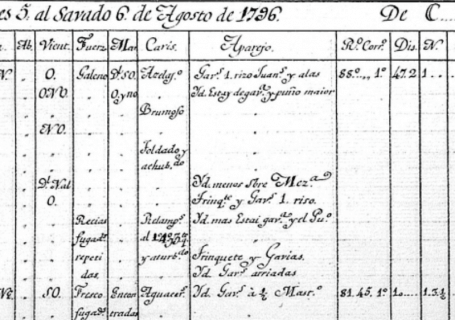 es 5. al Savado 6. de Agosto de 1796. De C
Ab. Vient. Fuerz. Mar Caris. Aparejo. Rº Corrº. Dis. N.
O. Galeno Dº SO. Acelgº. Garˢ. 1. rizo Juanˢ. y alas 88º... 1º 472 1
ONO. O.yno. Yd. Estay de garˢ. y puño maior
Brumoso
NO.
Toldado y
achubdo
Yd. menos sbre Mezª.
O. Trinqte. y Garˢ. 1. rizo.
Recias Relampº. Yd. mas Estai garˢ. y el
fugads. al
repeti y Trinquete y Garias.
das. Yd. Garˢ. arriadas
SO. Fresco Encon Aguacerº. Yd. Garˢ. à ½ Mastº. 81.45. 1º 1.. 1.3½
fugads. tradas